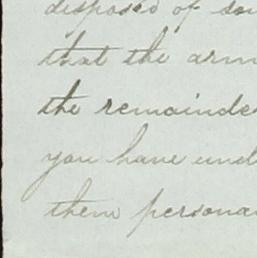 disposed of
that the arm
the remainde
you have und
them persona